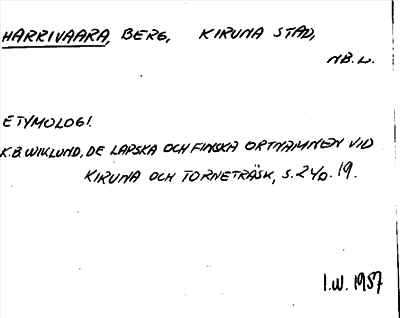 HARRIVAARA, BERG, KIRUNA STAD,
NB.L.
ETYMOLOGI.
K.B. WIKLUND, DE LAPSKA OCH FINSKA ORTNAMNEN VID
KIRUNA OCH TORNETRÄSK, S. 19.
I.W. 1957